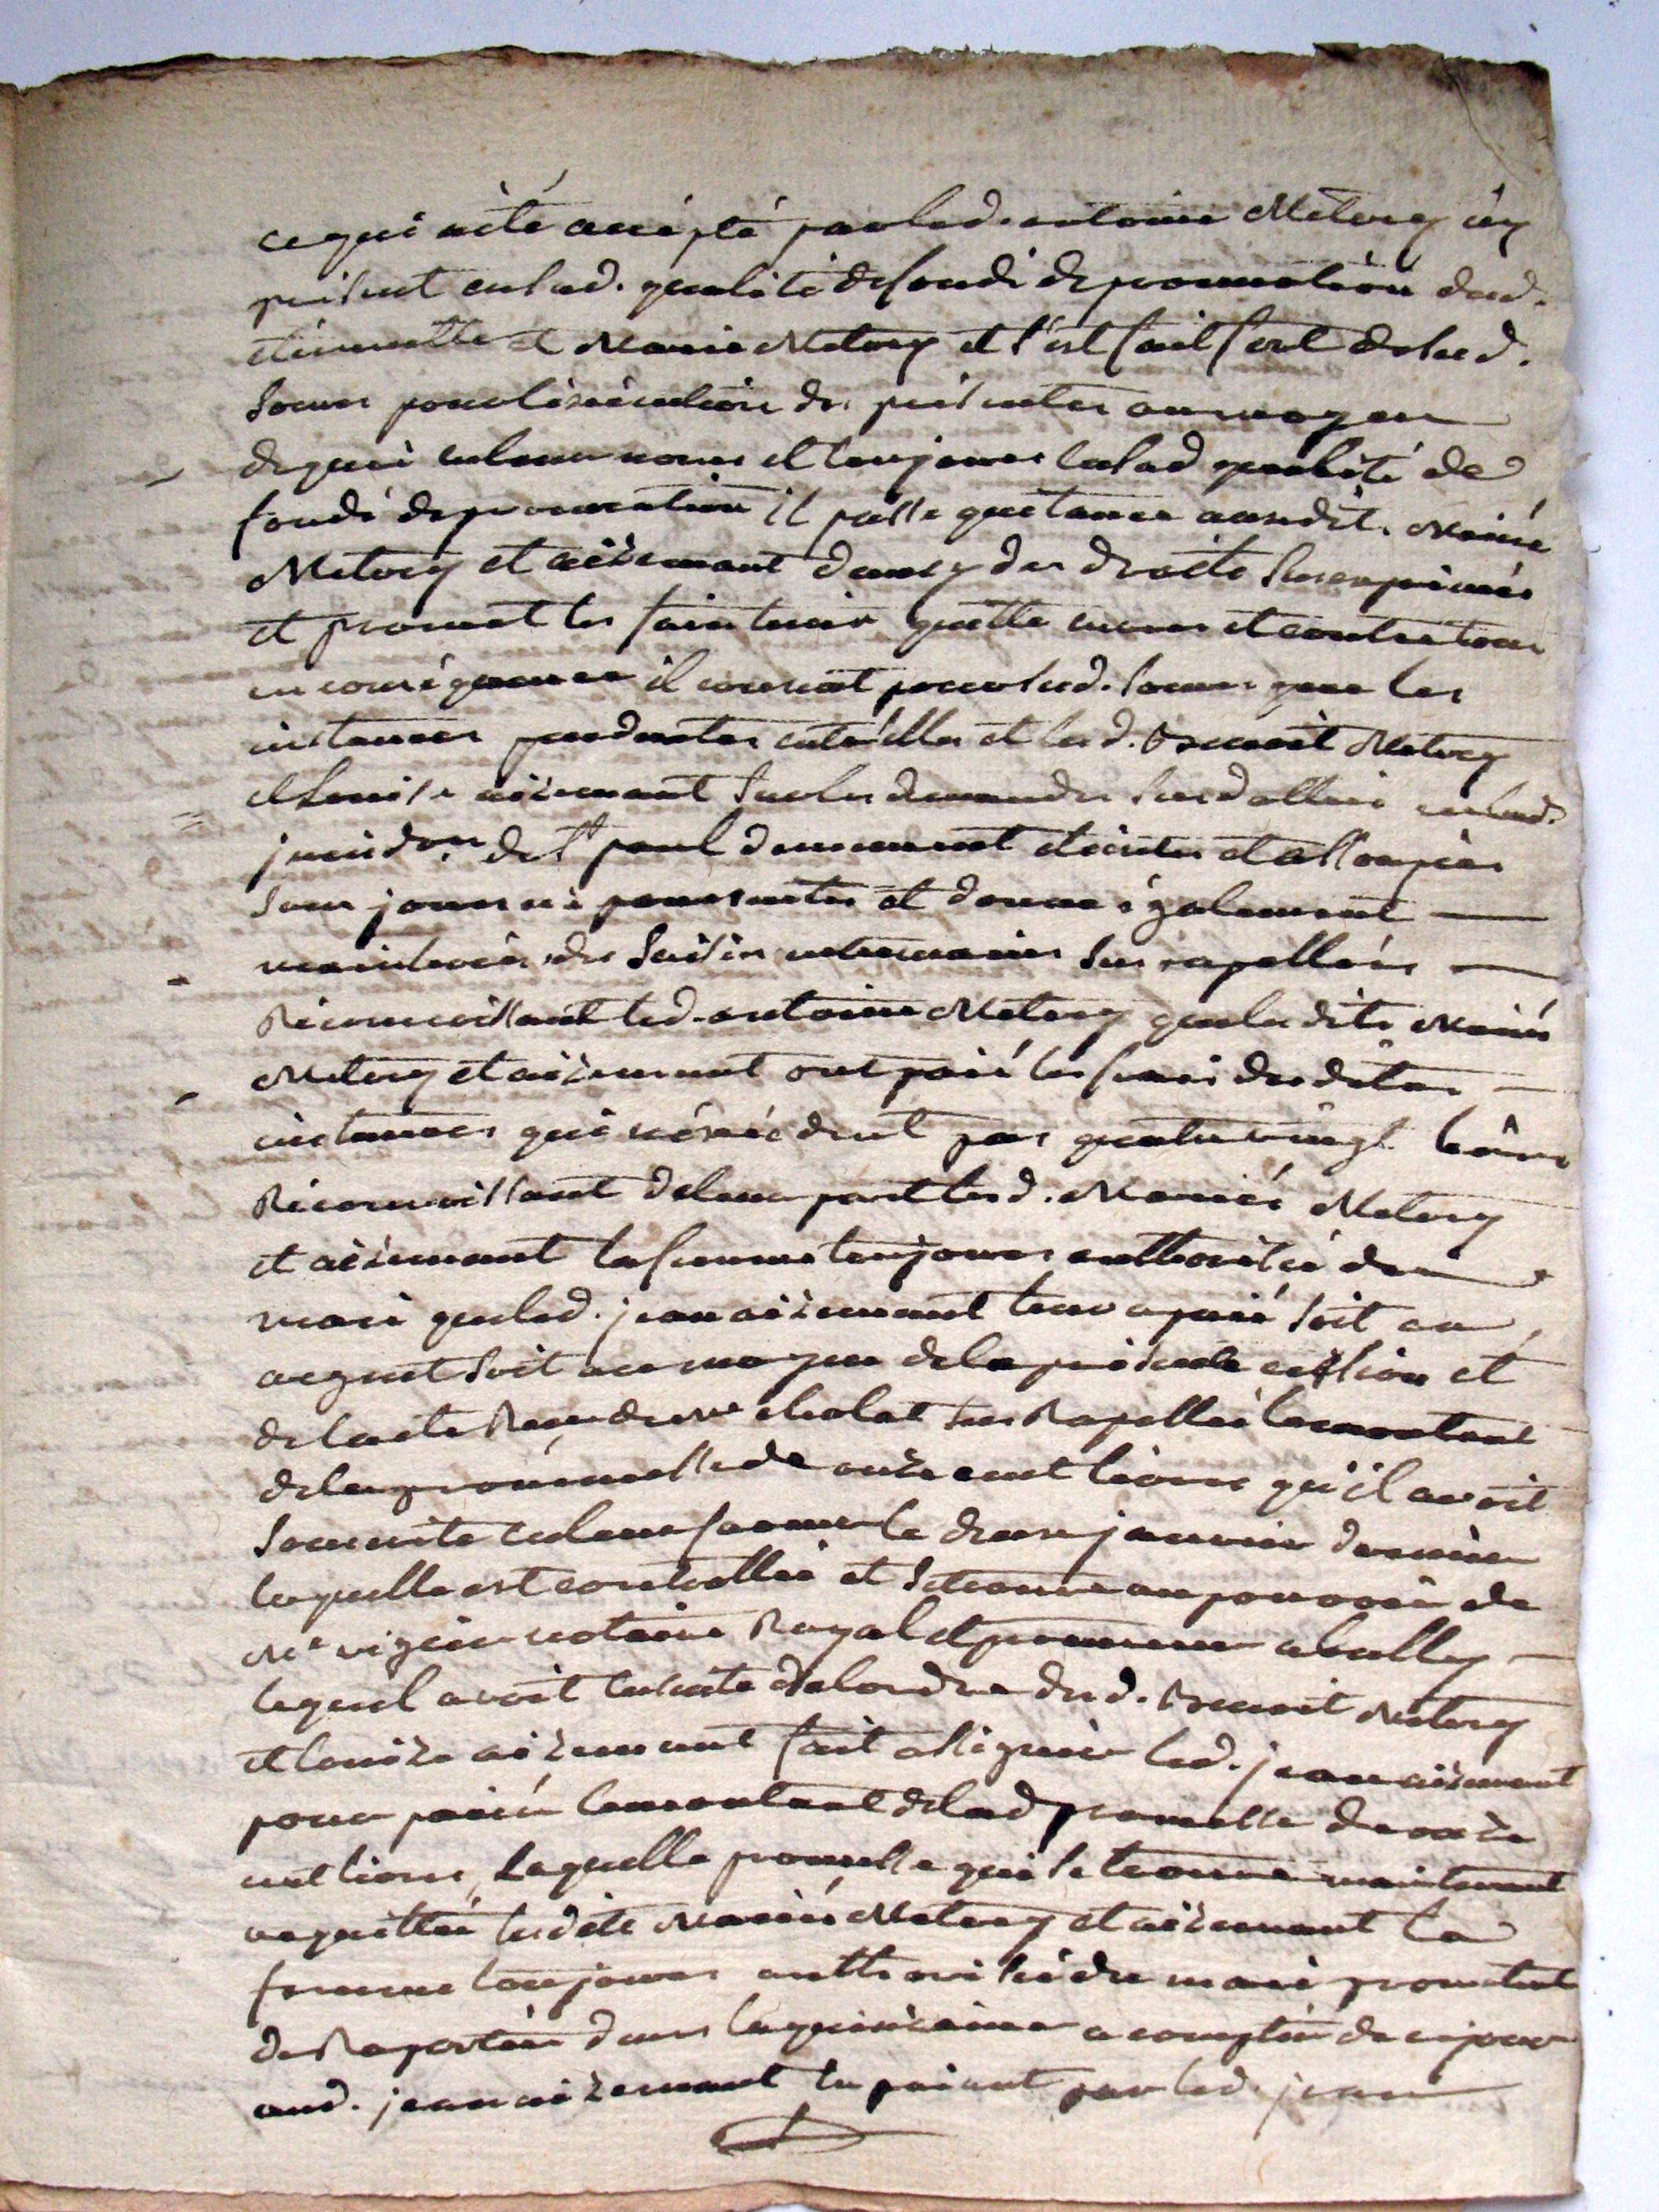 ce qui a été accépté par led. antoine Metery icy
présent en sad. qualité de fondé de procuration desd.
étiennette et Marie Metery et s'est fait fort de sesd.
soeurs pour l'éxécution des présentes au moyen
de quoi en leur nom et toujours en sad qualité de
fondé de procuration il passe quitance auxdits mariés
Metery et aizemant des droits sus exprimés
et promet les faire tenir quitte envers et contre tous
en conséquence il consent pour sesd. soeurs que les
instances pendantes entr'elles et lesd. Benoit Metery
et Louise aizemant sur les demandes en lad.
juridon. de St paul demeurent éteintes et assoupies
sans jours ni poursuites et donne également
mainlevée des saisies sus rapellées
Réconnoissant led. antoine Metery que lesdits mariés
Metery et aizemant ont paié les frais desdites
instances qui n'éxcédent pas quatre vingt livres
Réconnoissant de leur part lesd. Mariés Metery
et aizemant la femme toujours authorisée du
mari que led. jean aizemant leur a paié soit en
argent soit au moyen de la présente cession et
de l'acte Reçu dud me cholat sus Rapellée le montant
de la promesse de onze cent livres qu'il avoit
souscrite en leur faveur le deux janvier dernier
laquelle est controllée et se trouve au pouvoir de
Me vizier notaire Royal et procureur
lequel avoit ensuite de l'ordre desd. Benoit Metery
et louize aizemant fait assigner led. jean aizemant
pour paier le montant de lad promesse de onze
cent livres, Laquelle promesse qui se trouve maintenant
acquittée lesdits Mariés Metery et aizemant la
femme toujours authorisée du mari promettent
de Raporter dans la quinzaine a compter de ce jour
aud. jean aizemant en paiant par led. jean